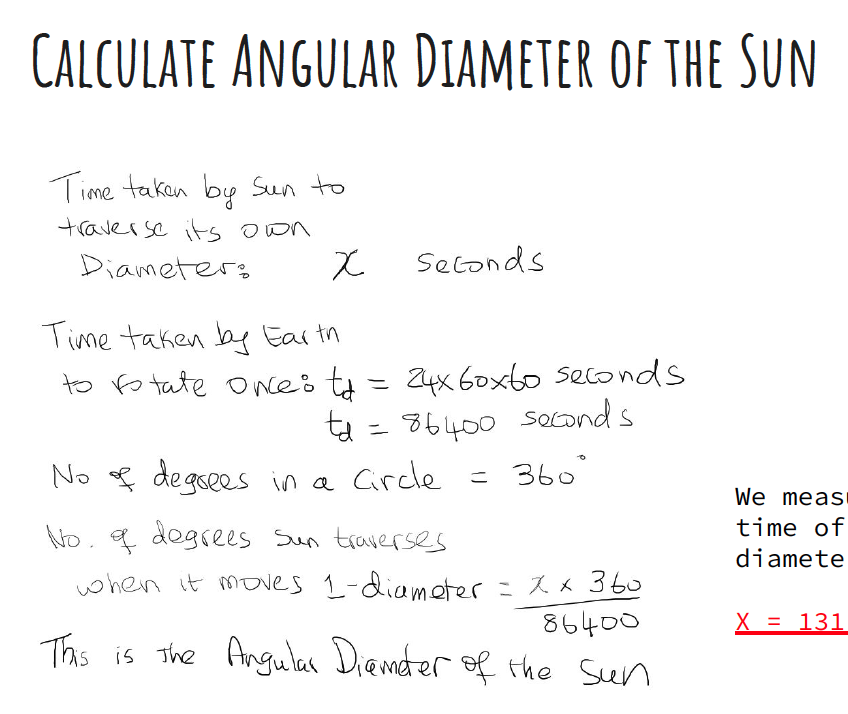 CALCULATE ANGULAR DIAMETER OF THE SUN
Time taken by Sun to
traverse its own
Diameter: x seconds
Time taken by Earth
to rotate once: td = 24x60x60 seconds
td = 86400 seconds
No of degrees in a Circle = 360°
No. of degrees sun traverses
when it moves 1-diameter = x x 360
86400
This is the Angular Diameter of the Sun
We meas
time of
diamete
X = 131